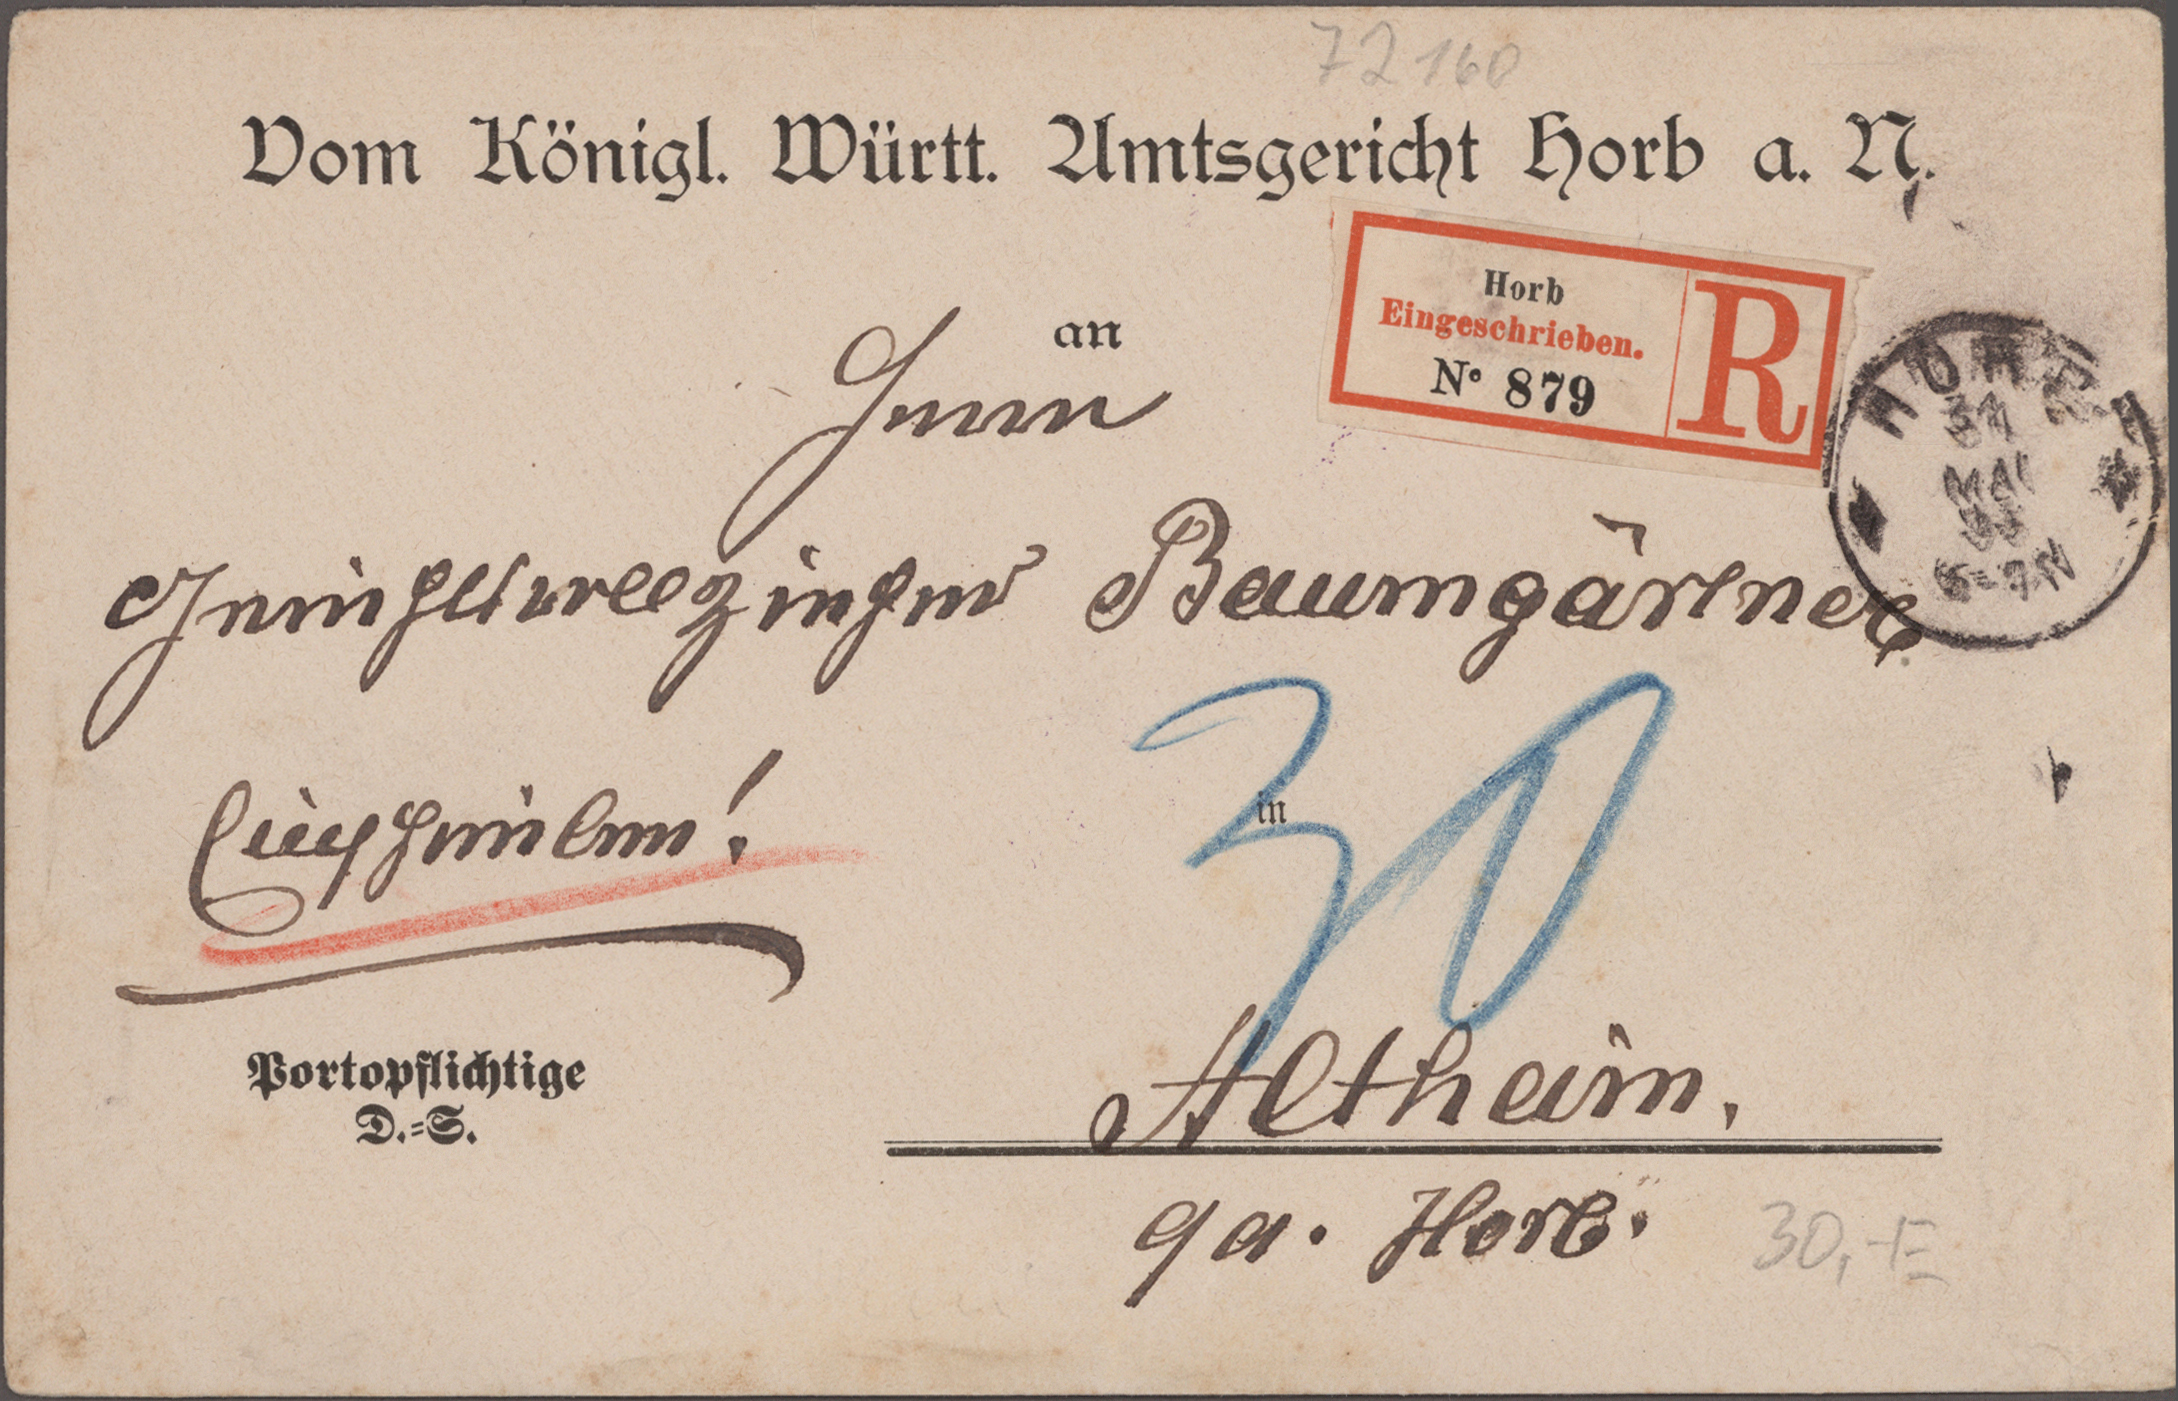 72160
Vom Königl. Württ. Amtsgericht Horb a. N.
Horb
Eingeschrieben.
No 879
R
an
Herrn
HORB
31
MAI
Gerichtsvollzieher Baumgärtner
Einschreiben!
30
in
Portopflichtige
D.-S.
Altheim,
Horb.
30,-